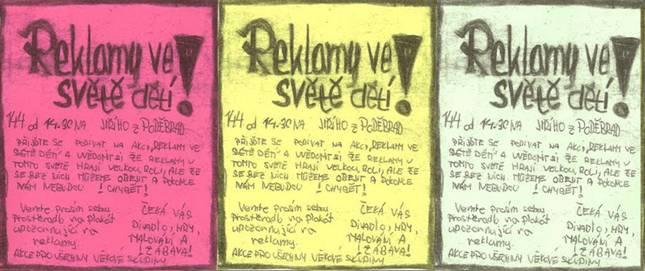 Reklamy ve
světě dětí!
14.4 od 14.30 NA JIŘÍHO z PODĚBRAD
PŘIJĎTE SE PODÍVAT NA AKCI, REKLAMY VE
SVĚTĚ DĚTÍ A UVĚDOMIT SI ŽE REKLAMY V
TOMTO SVĚTĚ HRAJÍ VELKOU ROLI, ALE ŽE
SE BEZ NICH MŮŽEME OBEJÍT A POKOJNĚ
NÁM NEBUDOU ! CHYBĚT!
Vemte prosím sebou
prostěradlo na plakát
upozorňující na
reklamy.
ČEKÁ VÁS
DIVADLO, HRY,
MALOVÁNÍ A
! ZÁBAVA!
AKCE PRO VŠECHNY VĚKOVÉ SKUPINY
Reklamy ve
světě dětí!
14.4 od 14.30 NA JIŘÍHO z PODĚBRAD
PŘIJĎTE SE PODÍVAT NA AKCI, REKLAMY VE
SVĚTĚ DĚTÍ A UVĚDOMIT SI ŽE REKLAMY V
TOMTO SVĚTĚ HRAJÍ VELKOU ROLI, ALE ŽE
SE BEZ NICH MŮŽEME OBEJÍT A POKOJNĚ
NÁM NEBUDOU ! CHYBĚT!
Vemte prosím sebou
prostěradlo na plakát
upozorňující na
reklamy.
ČEKÁ VÁS
DIVADLO, HRY,
MALOVÁNÍ A
! ZÁBAVA!
AKCE PRO VŠECHNY VĚKOVÉ SKUPINY
Reklamy ve
světě dětí!
14.4 od 14.30 NA JIŘÍHO z PODĚBRAD
PŘIJĎTE SE PODÍVAT NA AKCI, REKLAMY VE
SVĚTĚ DĚTÍ A UVĚDOMIT SI ŽE REKLAMY V
TOMTO SVĚTĚ HRAJÍ VELKOU ROLI, ALE ŽE
SE BEZ NICH MŮŽEME OBEJÍT A POKOJNĚ
NÁM NEBUDOU ! CHYBĚT!
Vemte prosím sebou
prostěradlo na plakát
upozorňující na
reklamy.
ČEKÁ VÁS
DIVADLO, HRY,
MALOVÁNÍ A
! ZÁBAVA!
AKCE PRO VŠECHNY VĚKOVÉ SKUPINY